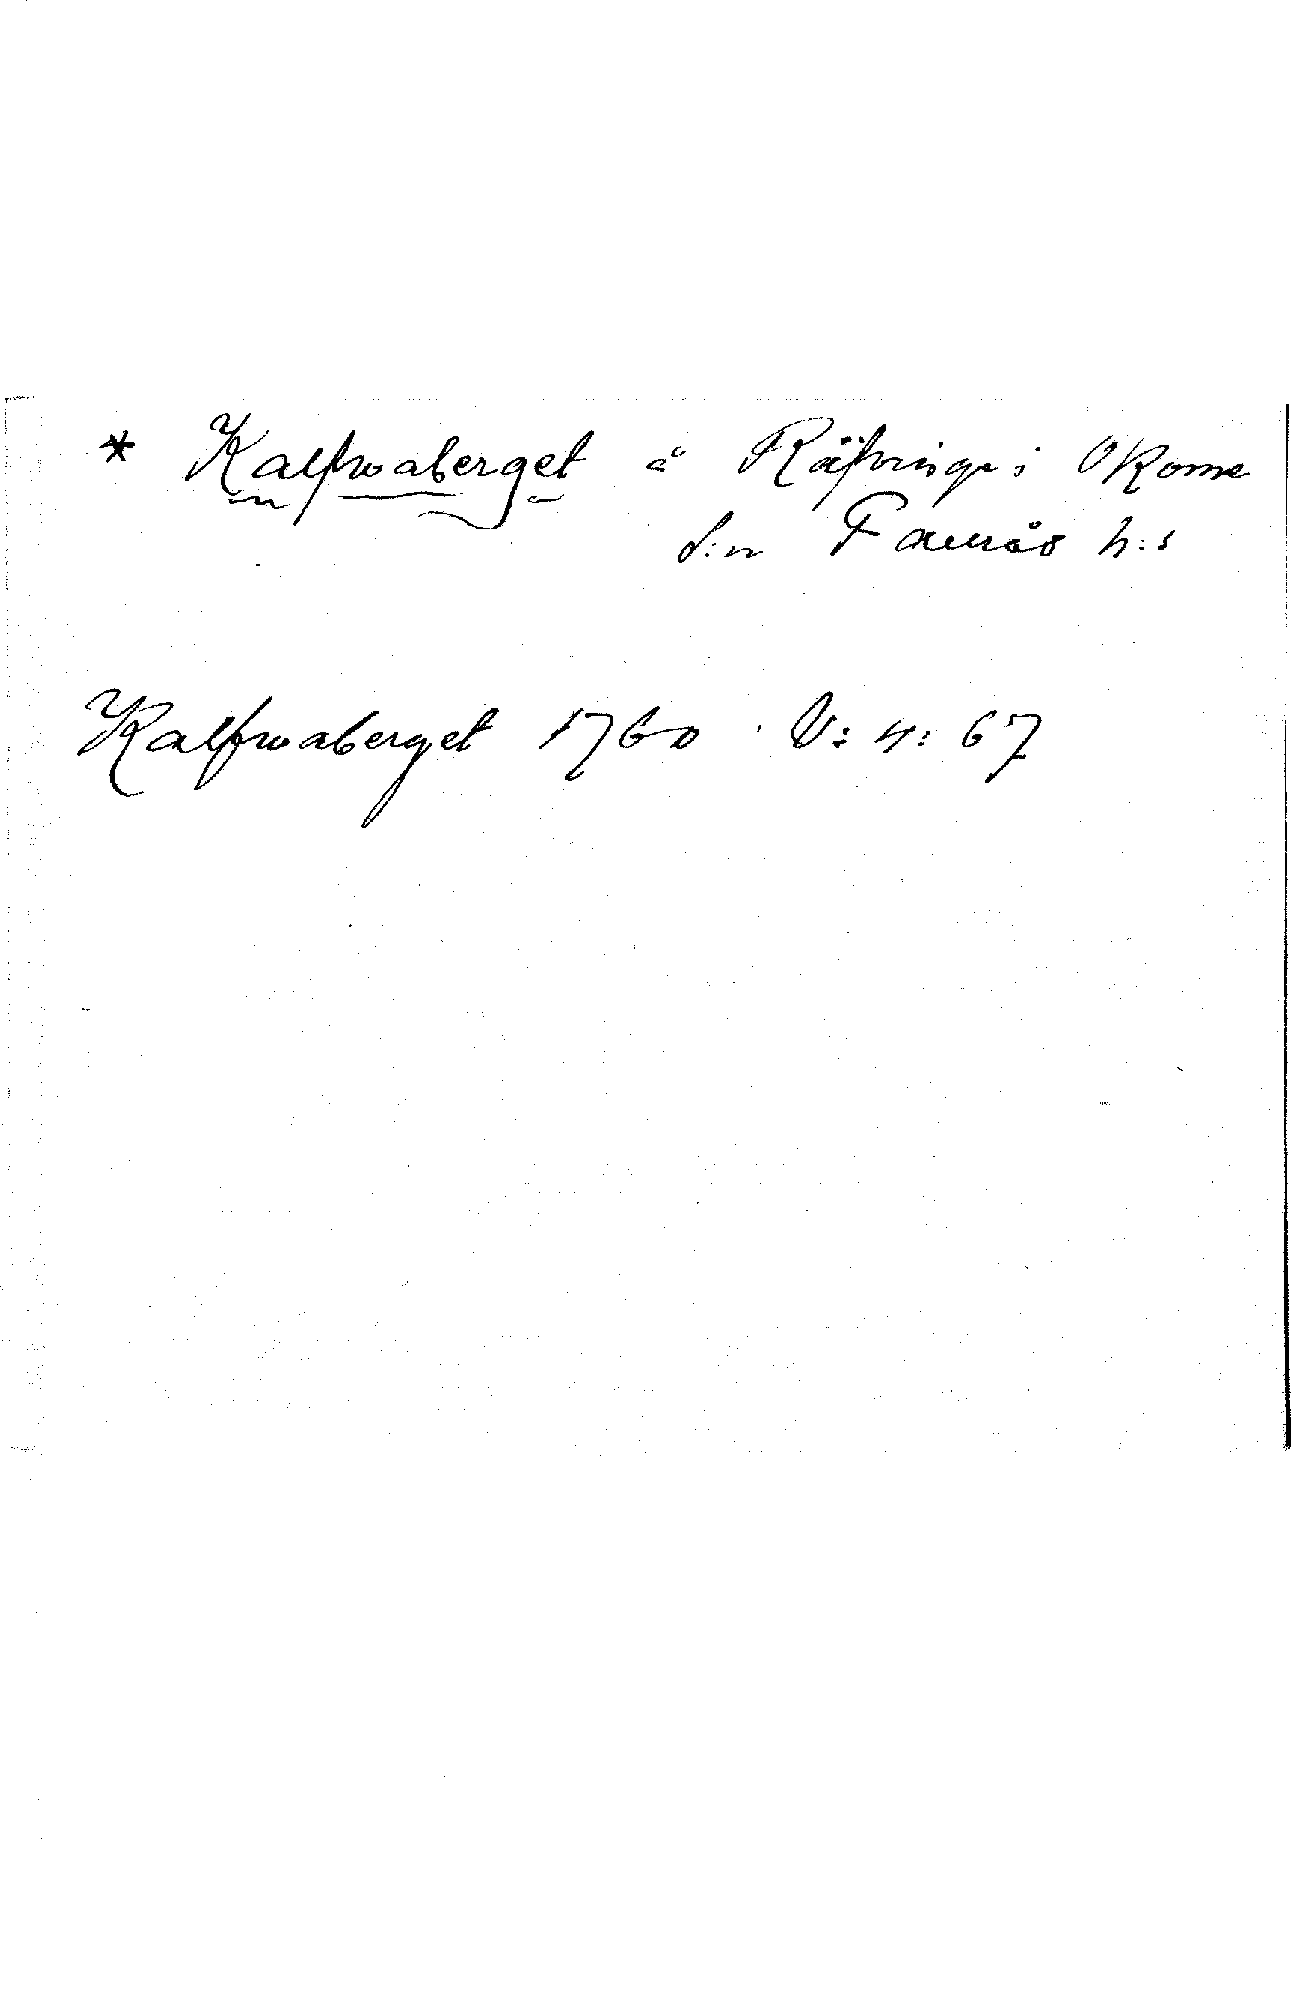 * Kalfwaberget å Räfvinge i Okome
s:n Faurås h:s
Kalfwaberget 1760 V: 4: 67